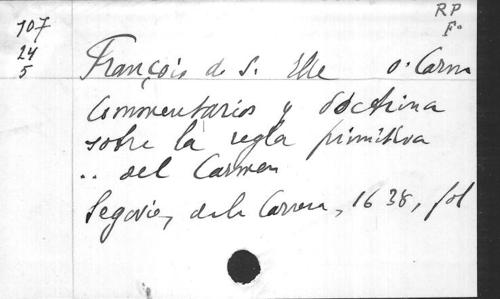 RP
Fº
107
24
5
François de S. Elle o. Carm
Commentarios y doctrina
sobre la regla primitiva
.. del Carmen
Segovie, de la Carrera, 1638, fol